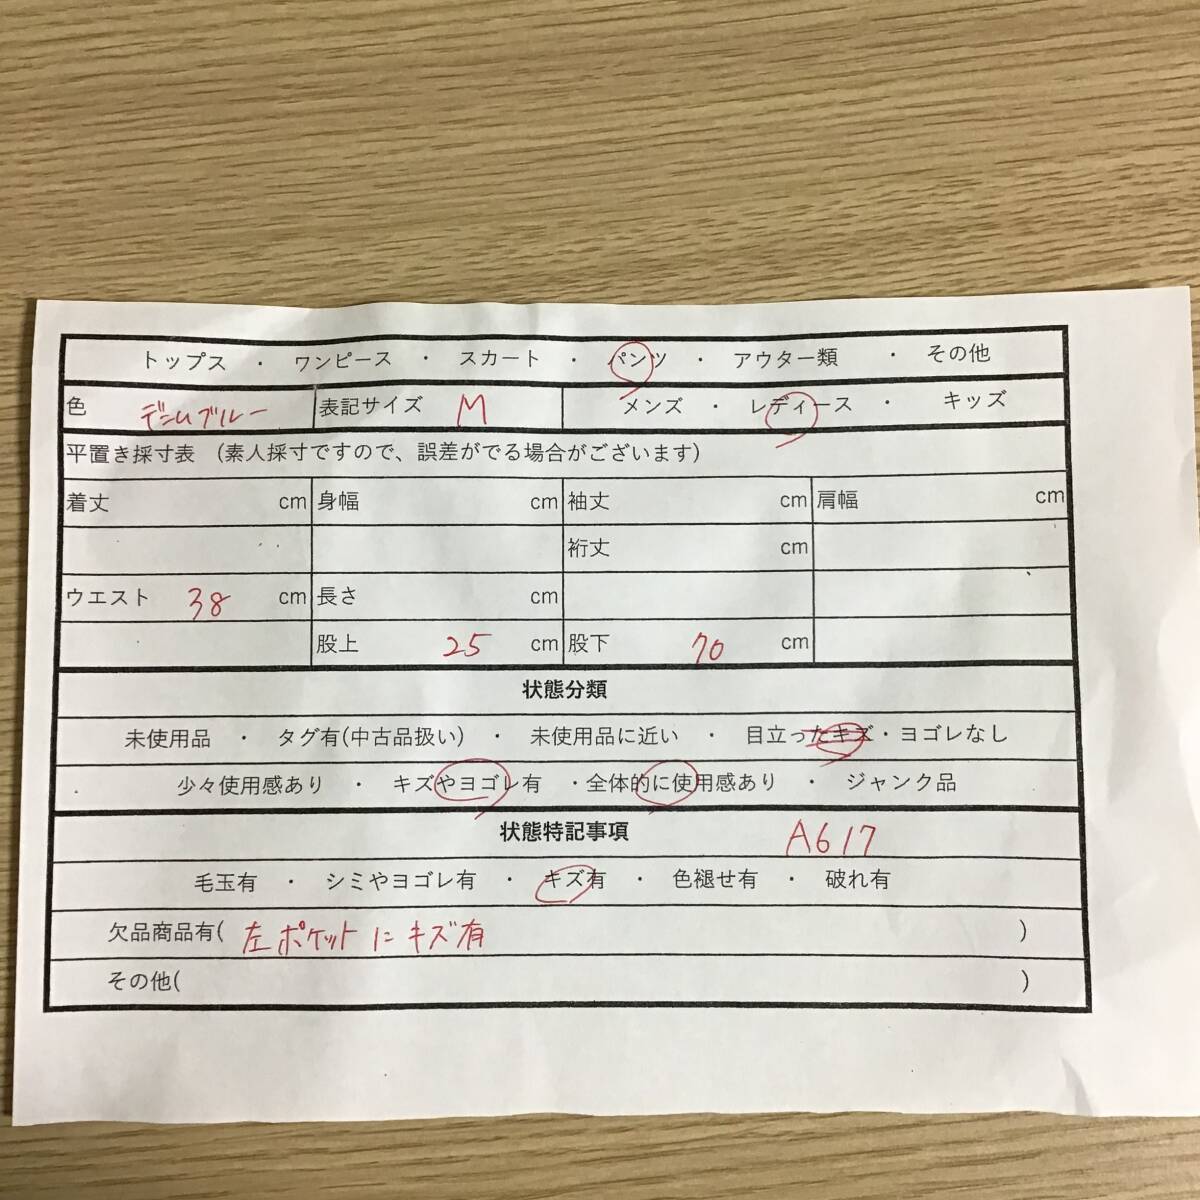 トップス ・ ワンピース ・ スカート ・ パンツ ・ アウター類 ・ その他
色 デニムブルー 表記サイズ M メンズ ・ レディース ・ キッズ
平置き採寸表 （素人採寸ですので、誤差がでる場合がございます）
着丈 cm 身幅 cm 袖丈 cm 肩幅 cm
裄丈 cm
ウエスト 38 cm 長さ cm
股上 25 cm 股下 70 cm
状態分類
未使用品 ・ タグ有(中古品扱い) ・ 未使用品に近い ・ 目立ったキズ・ヨゴレなし
少々使用感あり ・ キズやヨゴレ有 ・全体的に使用感あり ・ ジャンク品
状態特記事項 A617
毛玉有 ・ シミやヨゴレ有 ・ キズ有 ・ 色褪せ有 ・ 破れ有
欠品商品有( 左ポケットにキズ有 )
その他( )